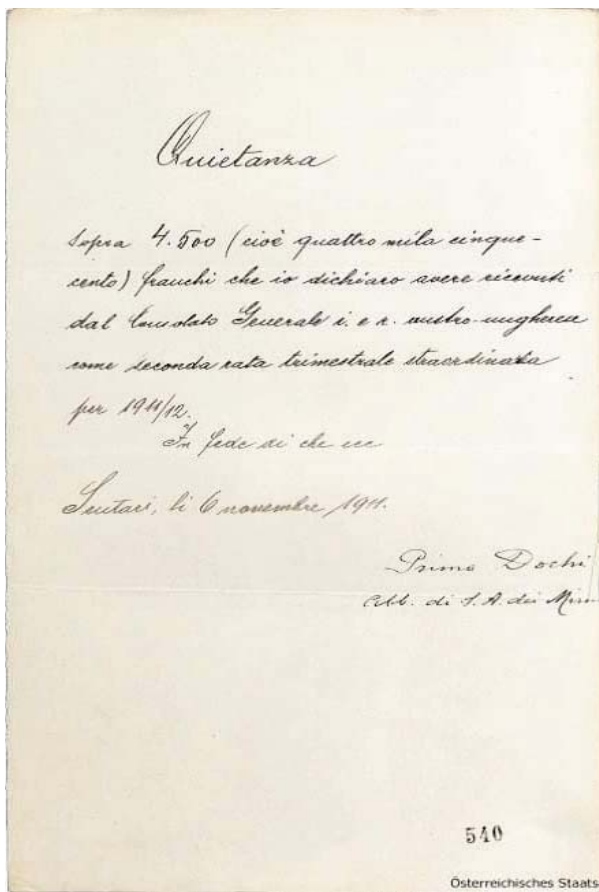 Quietanza
sopra 4.500 (cioè quattro mila cinque-
cento) franchi che io dichiaro avere ricevuti
dal Consolato Generale i. e r. austro-ungherese
come seconda rata trimestrale straordinaria
per 1911/12.
In fede di che ecc
Scutari, li 6 novembre 1911.
Primo Dochi
Abb. di S. A. dei Mir
540
Österreichisches Staats